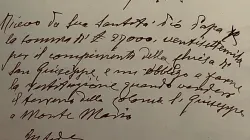 Ricevo da Sua Santità Pio Papa X
la somma di £ 27000. ventisettemila
per il compimento della chiesa di
San Giuseppe, e mi obbligo a farne
la restituzione quando venderò
il terreno della Colonia S. Giuseppe
a Monte Mario